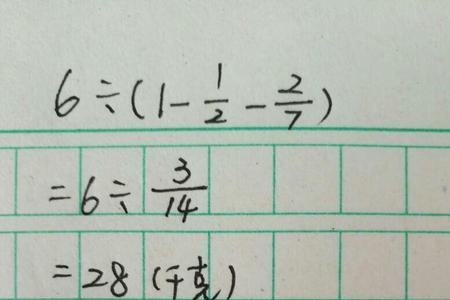 6÷(1-\frac{1}{2}-\frac{2}{7})
=6÷\frac{3}{14}
=28(千克)